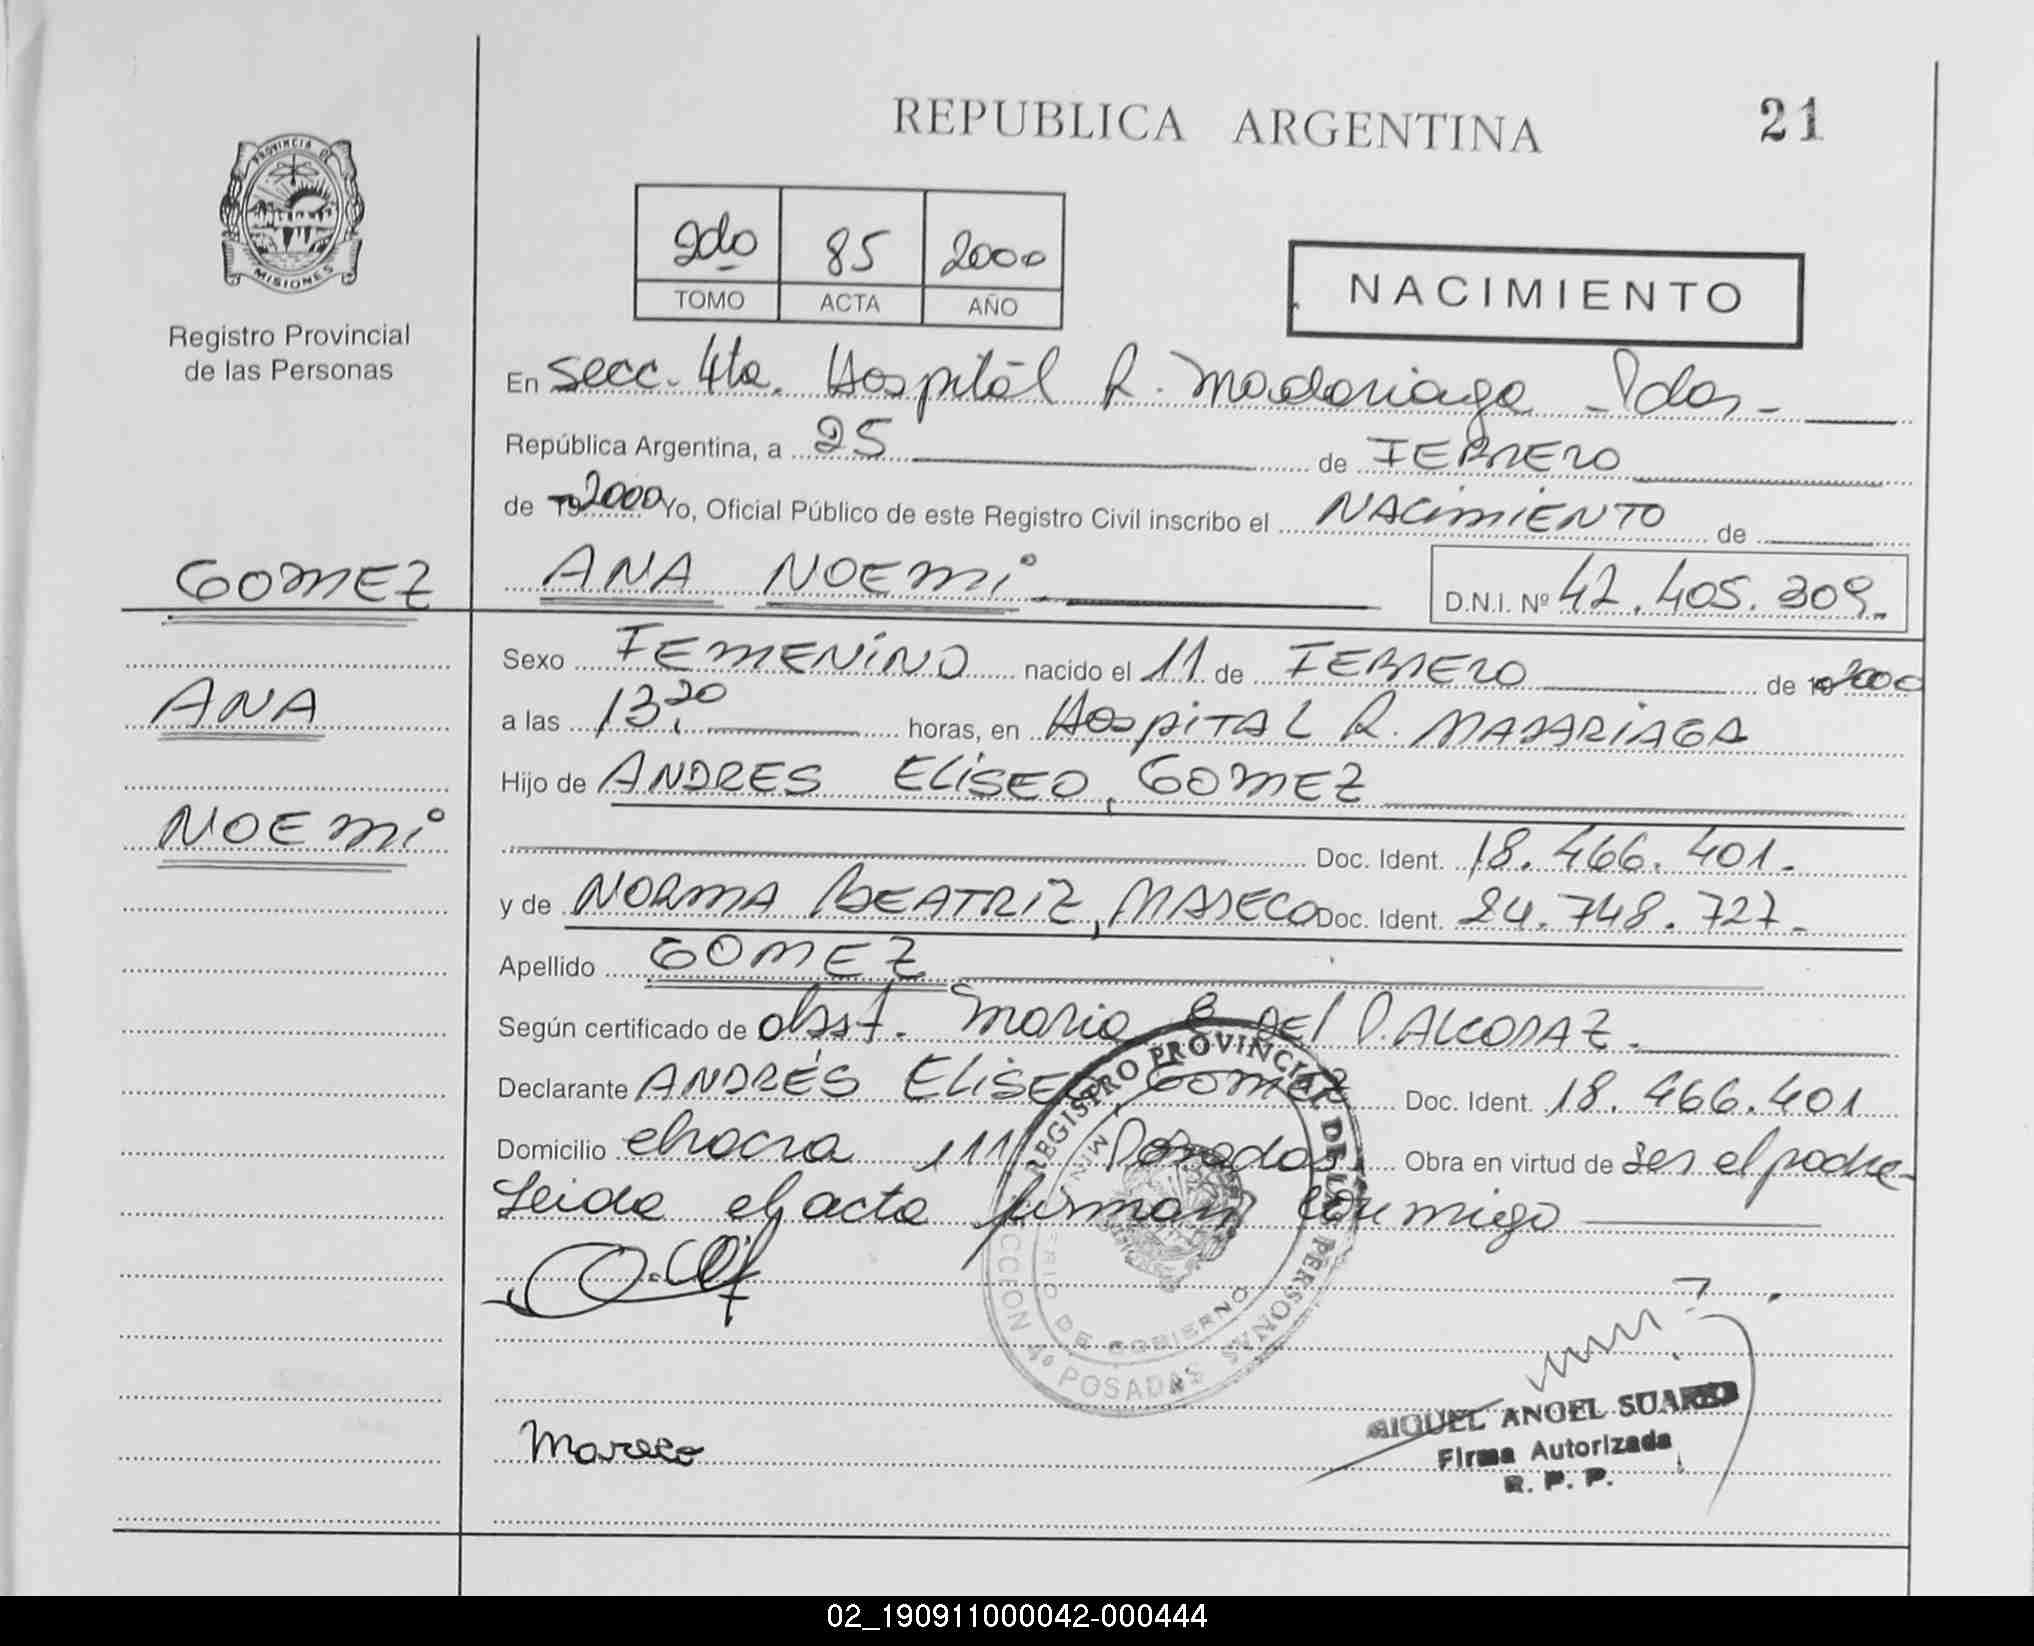 REPUBLICA ARGENTINA
21
PROVINCIA DE
MISIONES
Registro Provincial
de las Personas
2do 85 2000
TOMO ACTA AÑO
NACIMIENTO
En Secc. 4ta. Hospital R. Madariaga - Pdas -
República Argentina, a 25 de FEBRERO
de 19 2000 Yo, Oficial Público de este Registro Civil inscribo el NACIMIENTO de
GOMEZ
ANA NOEMI
D.N.I. Nº 42.405.309.
Sexo FEMENINO nacido el 11 de FEBRERO de 19 2000
ANA
a las 13.20 horas, en HOSPITAL R. MADARIAGA
Hijo de ANDRES ELISEO, GOMEZ
NOEMI
Doc. Ident. 18.466.401.
y de NORMA BEATRIZ, MARECO Doc. Ident. 24.748.727.
Apellido GOMEZ
Según certificado de obst. Maria E DEL P. ALCORAZ.
Declarante ANDRÉS ELISEO GOMEZ Doc. Ident. 18.466.401
Domicilio chacra 111 Posadas Obra en virtud de ser el padre-
Leida el acta firman conmigo
REGISTRO PROVINCIAL DE LAS PERSONAS
MINISTERIO DE GOBIERNO
SECCION 4º POSADAS
Mareco
MIGUEL ANGEL SUAREZ
Firma Autorizada
R. P. P.
02_190911000042-000444